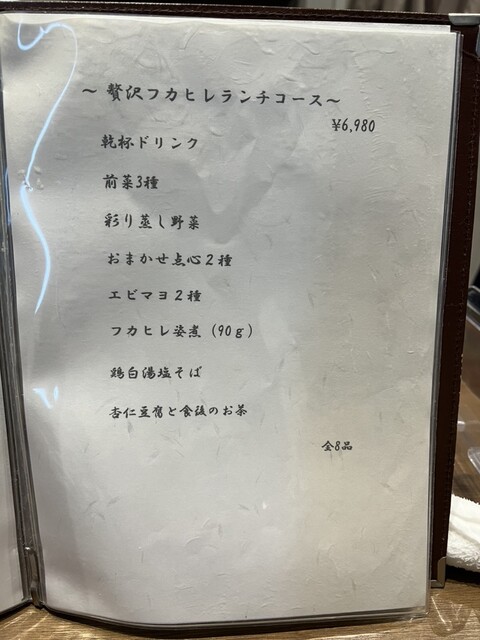 ～ 贅沢フカヒレランチコース～
¥6,980
乾杯ドリンク
前菜3種
彩り蒸し野菜
おまかせ点心２種
エビマヨ２種
フカヒレ姿煮（90ｇ）
鶏白湯塩そば
杏仁豆腐と食後のお茶
全8品